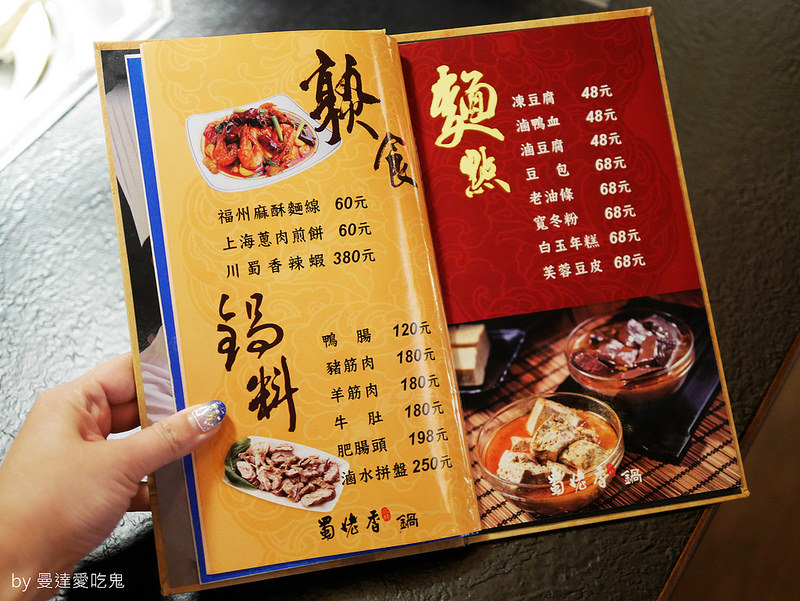 熟食
福州麻酥麵線 60元
上海蔥肉煎餅 60元
川蜀香辣蝦 380元
鍋料
鴨腸 120元
豬筋肉 180元
羊筋肉 180元
牛肚 180元
肥腸頭 198元
滷水拼盤 250元
蜀姥香 鍋
麵點
凍豆腐 48元
滷鴨血 48元
滷豆腐 48元
豆包 68元
老油條 68元
寬冬粉 68元
白玉年糕 68元
芙蓉豆皮 68元
蜀姥香 鍋
by 曼達愛吃鬼